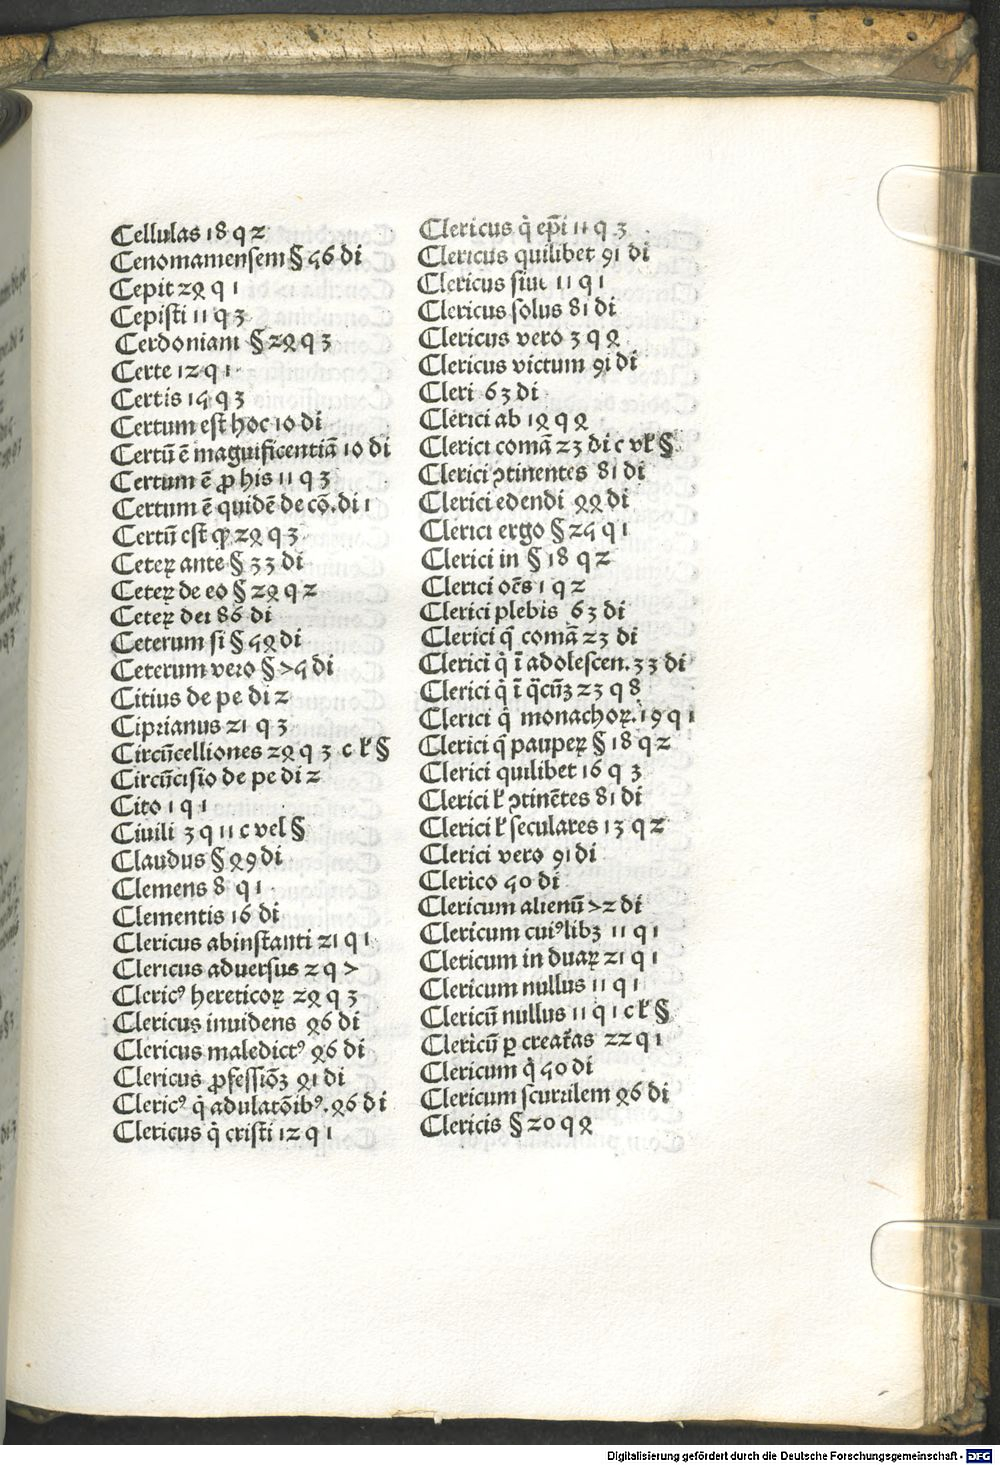 Cellulas 18 q 2
Cenomamensem § 56 di
Cepit 24 q 1
Cepisti 11 q 3
Cerdoniani § 24 q 3
Certe 12 q 1
Certis 15 q 3
Certum est hoc 10 di
Certū ē magnificentiā 10 di
Certum ē ꝓ his 11 q 3
Certum ē quidē de cō. di 1
Certū est ꝙ 24 q 3
Ceteꝝ ante § 33 di
Ceteꝝ de eo § 24 q 2
Ceteꝝ dei 86 di
Ceterum si § 54 di
Ceterum vero § 75 di
Citius de pe di 2
Ciprianus 21 q 3
Circūcelliones 24 q 3 c ł §
Circūcisio de pe di 2
Cito 1 q 1
Ciuili 3 q 11 c vel §
Claudus § 49 di
Clemens 8 q 1
Clementis 16 di
Clericus abinstanti 21 q 1
Clericus aduersus 2 q 7
Clericꝰ hereticoꝝ 24 q 3
Clericus inuidens 46 di
Clericus maledictꝰ 46 di
Clericus ꝓfessiōꝫ 41 di
Clericꝰ q̇ adulatōibꝰ. 46 di
Clericus q̇ cristi 12 q 1
Clericus q̇ ep̄i 11 q 3
Clericus quilibet 91 di
Clericus siue 11 q 1
Clericus solus 81 di
Clericus vero 3 q 4
Clericus victum 91 di
Cleri 63 di
Clerici ab 14 q 4
Clerici comā 23 di c vł §
Clerici ꝯtinentes 81 di
Clerici edendi 44 di
Clerici ergo § 25 q 1
Clerici in § 18 q 2
Clerici oēs 1 q 2
Clerici plebis 63 di
Clerici q̄ comā 23 di
Clerici q̇ ī adolescen. 33 di
Clerici q̇ ī q̄cūꝫ 23 q 8
Clerici q̇ monachoꝝ. 19 q 1
Clerici q̄ paupeꝝ § 18 q 2
Clerici quilibet 16 q 3
Clerici ł ꝯtinētes 81 di
Clerici ł seculares 13 q 2
Clerici vero 91 di
Clerico 50 di
Clericum alienū 72 di
Clericum cuiꝰlibꝫ 11 q 1
Clericum in duaꝝ 21 q 1
Clericum nullus 11 q 1
Clericū nullus 11 q 1 c ł §
Clericū ꝑ creat̃as 22 q 1
Clericum q̇ 50 di
Clericum scurrilem 46 di
Clericis § 20 q 4
Digitalisierung gefördert durch die Deutsche Forschungsgemeinschaft - DFG